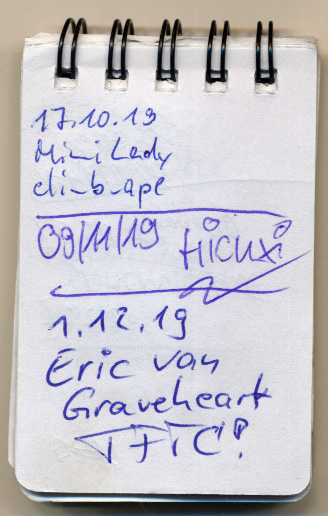 17.10.19
Mini Lady
climb_ape
09/11/19 Hicuxi
1.12.19
Eric van
Graveheart
TFTC!